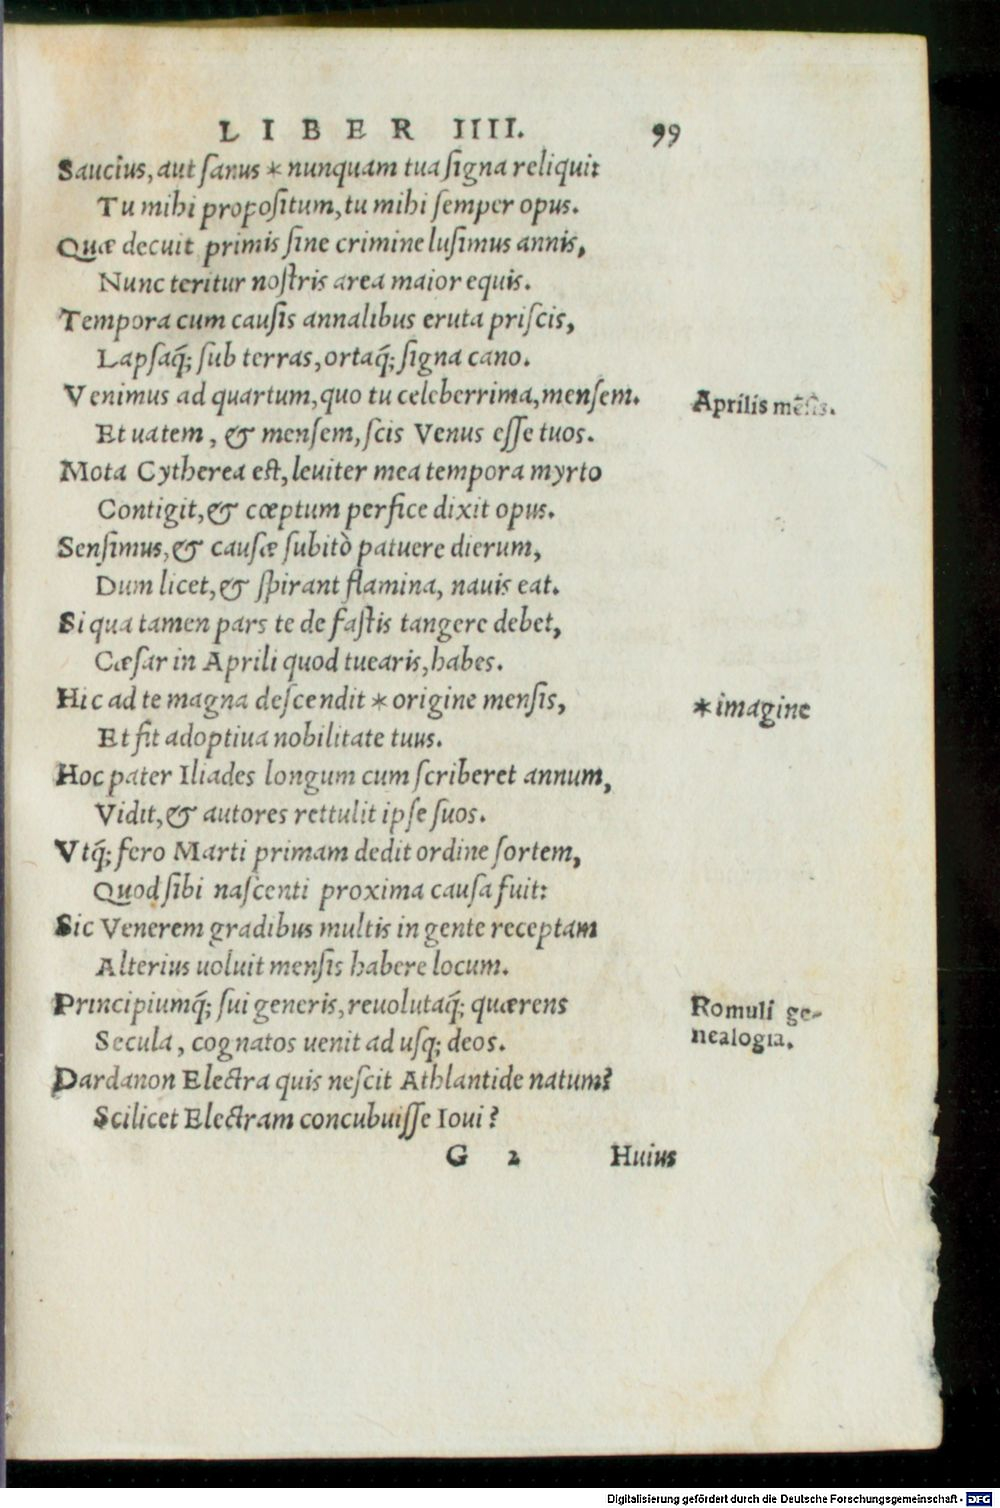 LIBER IIII. 99
Saucius, aut ſanus * nunquam tua ſigna reliqui:
Tu mihi propoſitum, tu mihi ſemper opus.
Quæ decuit primis ſine crimine luſimus annis,
Nunc teritur noſtris area maior equis.
Tempora cum cauſis annalibus eruta priſcis,
Lapſaq́; ſub terras, ortaq́; ſigna cano.
Venimus ad quartum, quo tu celeberrima, menſem.
Aprilis mēſis.
Et uatem, & menſem, ſcis Venus eſſe tuos.
Mota Cytherea eſt, leuiter mea tempora myrto
Contigit, & cœptum perfice dixit opus.
Senſimus, & cauſæ ſubitò patuere dierum,
Dum licet, & ſpirant flamina, nauis eat.
Si qua tamen pars te de faſtis tangere debet,
Cæſar in Aprili quod tuearis, habes.
Hic ad te magna deſcendit * origine menſis,
* imagine
Et fit adoptiua nobilitate tuus.
Hoc pater Iliades longum cum ſcriberet annum,
Vidit, & autores rettulit ipſe ſuos.
Vtq́; fero Marti primam dedit ordine ſortem,
Quod ſibi naſcenti proxima cauſa fuit:
Sic Venerem gradibus multis in gente receptam
Alterius uoluit menſis habere locum.
Principiumq́; ſui generis, reuolutaq́; quærens
Romuli ge-
nealogia.
Secula, cognatos uenit ad uſq; deos.
Dardanon Electra quis neſcit Athlantide natum?
Scilicet Electram concubuiſſe Ioui?
G 2 Huius
Digitalisierung gefördert durch die Deutsche Forschungsgemeinschaft - DFG